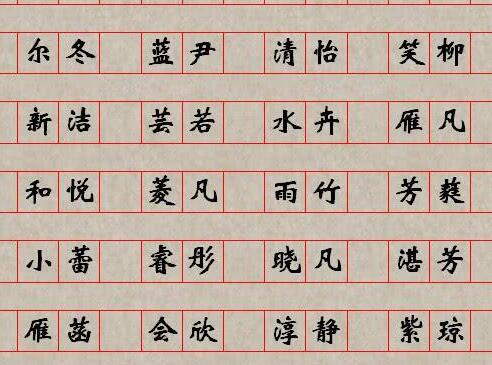 尔冬 蓝尹 清怡 笑柳
新洁 芸若 水卉 雁凡
和悦 菱凡 雨竹 芳蕤
小蕾 睿彤 晓凡 湛芳
雁菡 会欣 淳静 紫琼